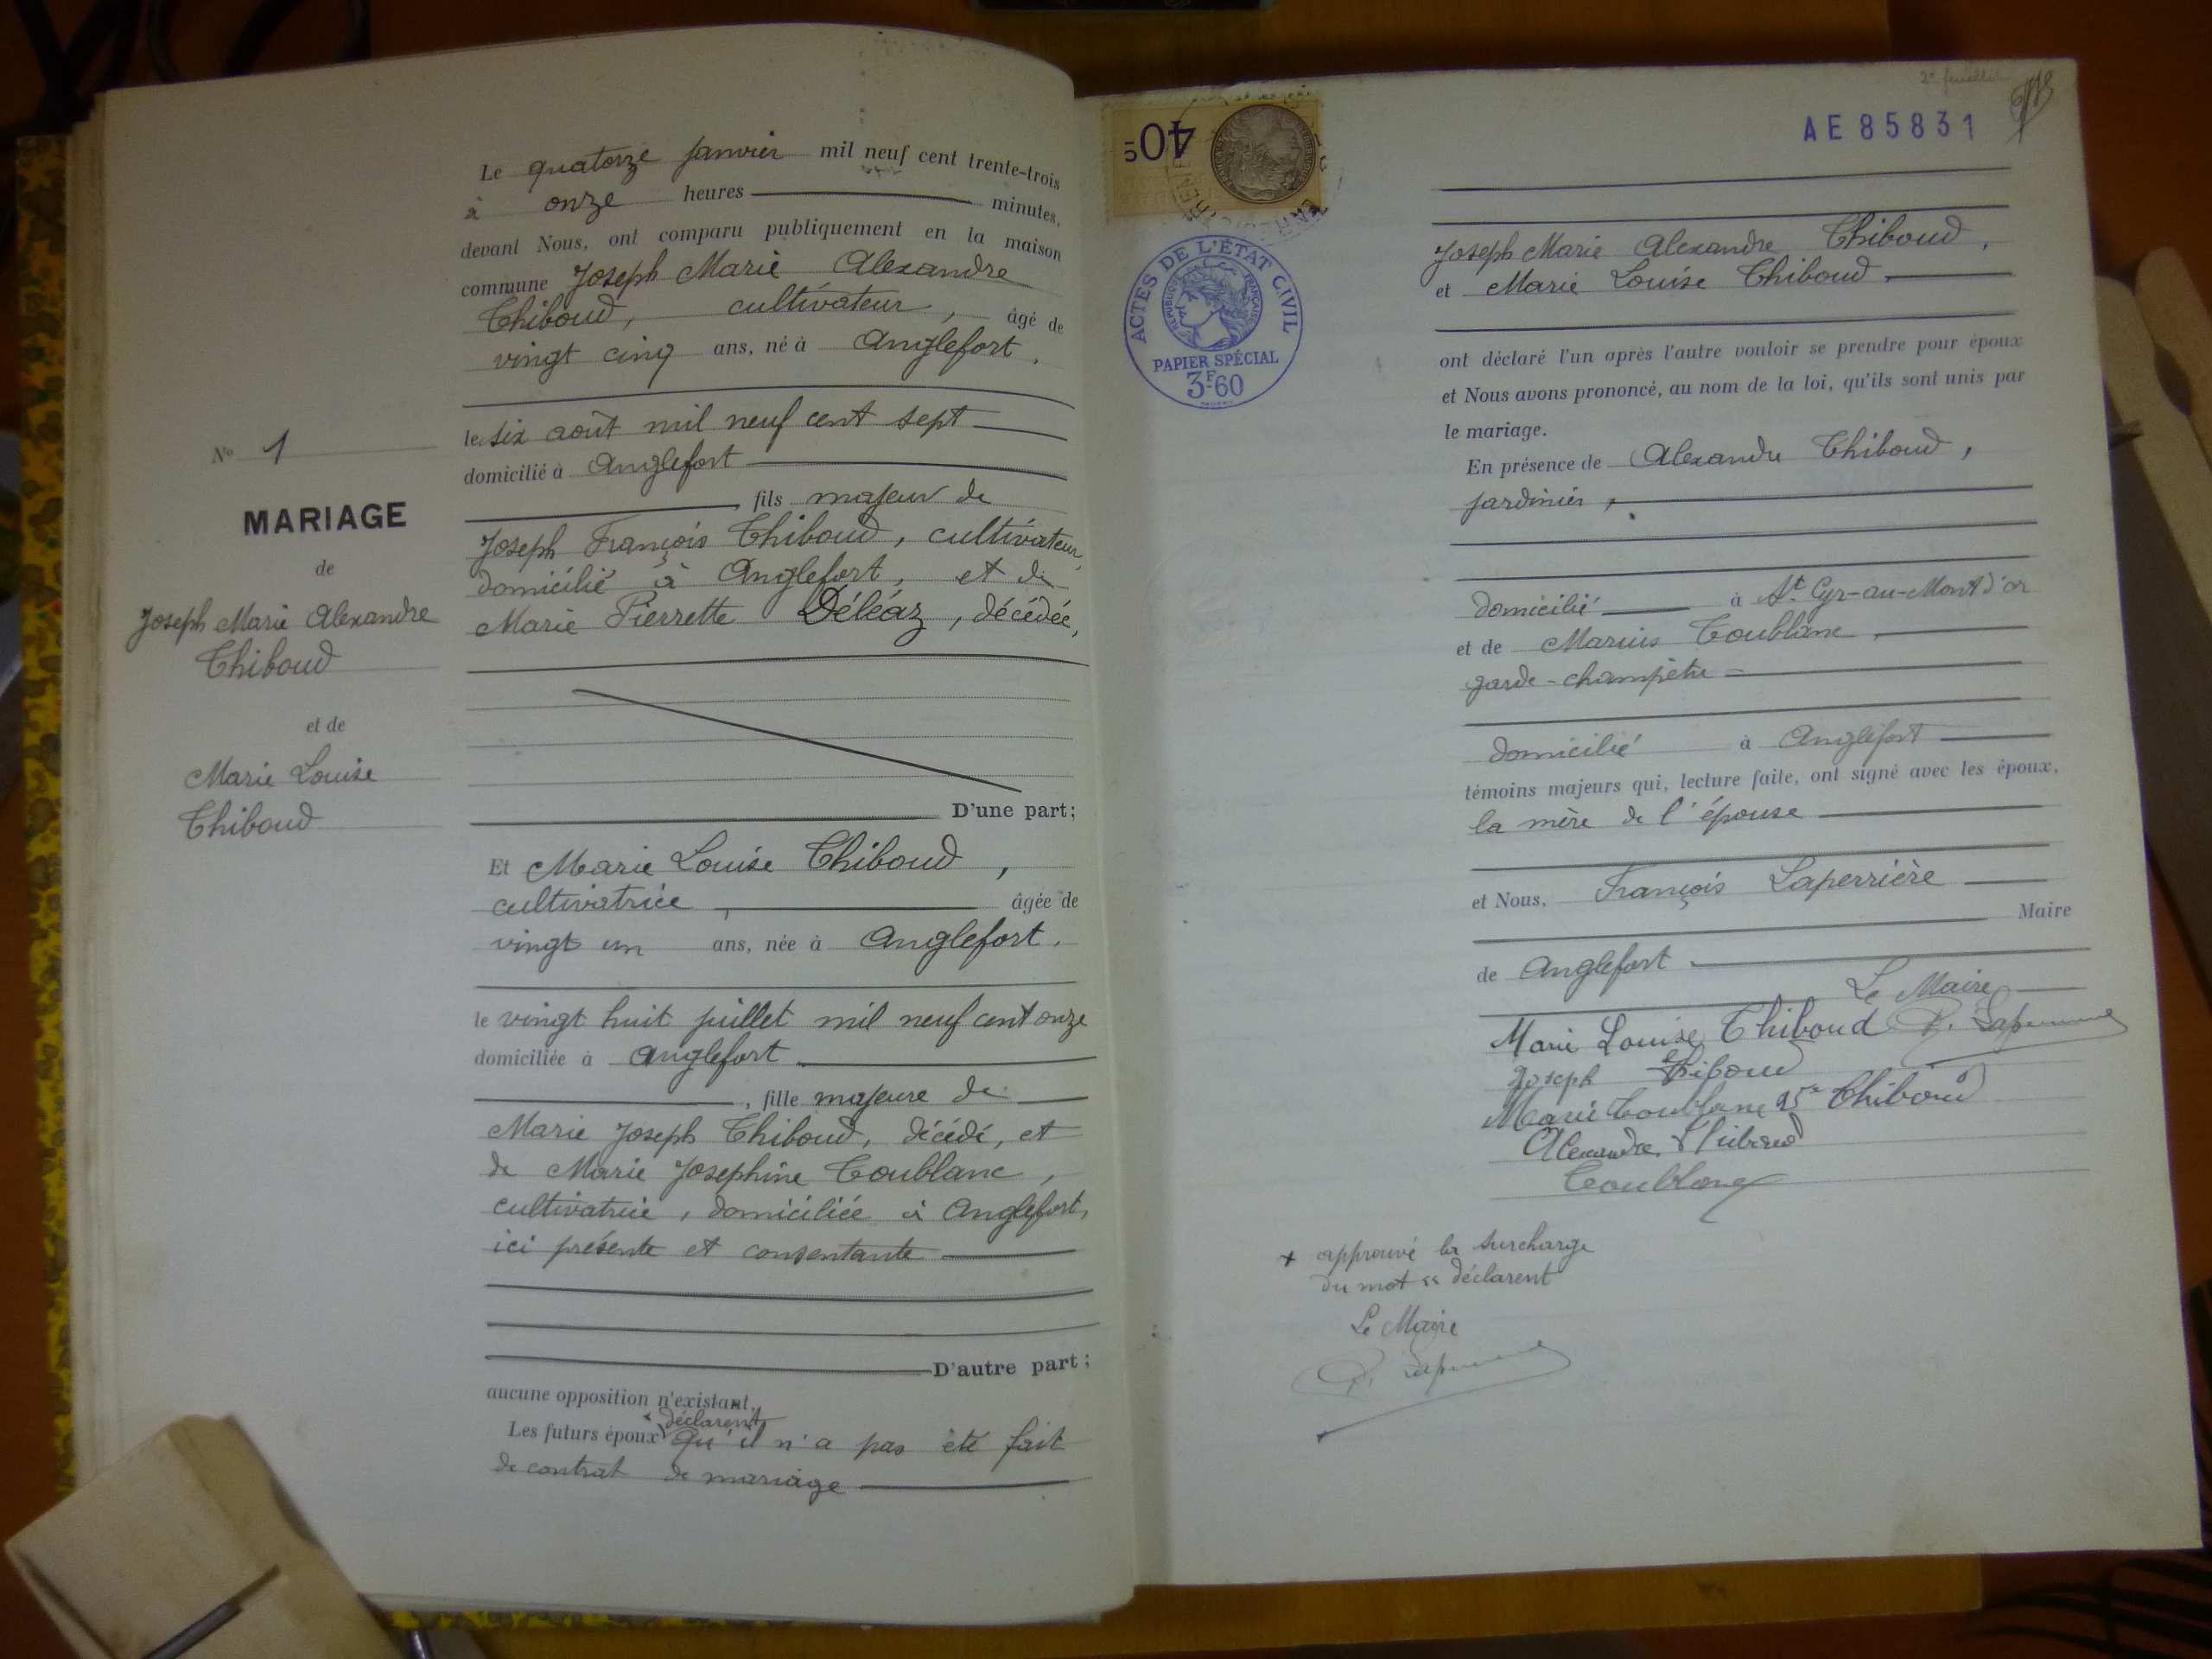 Le quatorze janvier mil neuf cent trente-trois
à onze heures minutes,
devant Nous, ont comparu publiquement en la maison
commune Joseph Marie Alexandre
Thiboud, cultivateur, âgé de
vingt cinq ans, né à Anglefort,
le six août mil neuf cent sept
domicilié à Anglefort
, fils majeur de
Joseph François Thiboud, cultivateur,
domicilié à Anglefort, et de
Marie Pierrette Déléaz, décédée,
D'une part;
Et Marie Louise Thiboud,
cultivatrice, âgée de
vingt un ans, née à Anglefort,
le vingt huit juillet mil neuf cent onze
domiciliée à Anglefort
, fille majeure de
Marie Joseph Thiboud, décédé, et
de Marie Josephine Toublanc,
cultivatrice, domiciliée à Anglefort,
ici présente et consentante
D'autre part;
aucune opposition n'existant,
déclarent
Les futurs époux qu'il n'a pas été fait
de contrat de mariage
No 1
MARIAGE
de
Joseph Marie Alexandre
Thiboud
et de
Marie Louise
Thiboud
2e feuillet
AE85831
40c
ACTES DE L'ÉTAT CIVIL
RÉPUBLIQUE FRANÇAISE
PAPIER SPÉCIAL
3F60
Joseph Marie Alexandre Thiboud,
et Marie Louise Thiboud
ont déclaré l'un après l'autre vouloir se prendre pour époux
et Nous avons prononcé, au nom de la loi, qu'ils sont unis par
le mariage.
En présence de Alexandre Thiboud,
jardinier,
domicilié à St Cyr-au-Mont d'or
et de Marius Toublanc,
garde-champêtre
domicilié à Anglefort
témoins majeurs qui, lecture faite, ont signé avec les époux,
la mère de l'épouse
et Nous, François Laperrière
Maire
de Anglefort.
Le Maire
Marie Louise Thiboud F. Laperrière
Joseph Thiboud
Marie Toublanc Thiboud
Alexandre Thiboud
Toublanc
+ approuvé la surcharge
du mot "déclarent
Le Maire
F. Laperrière